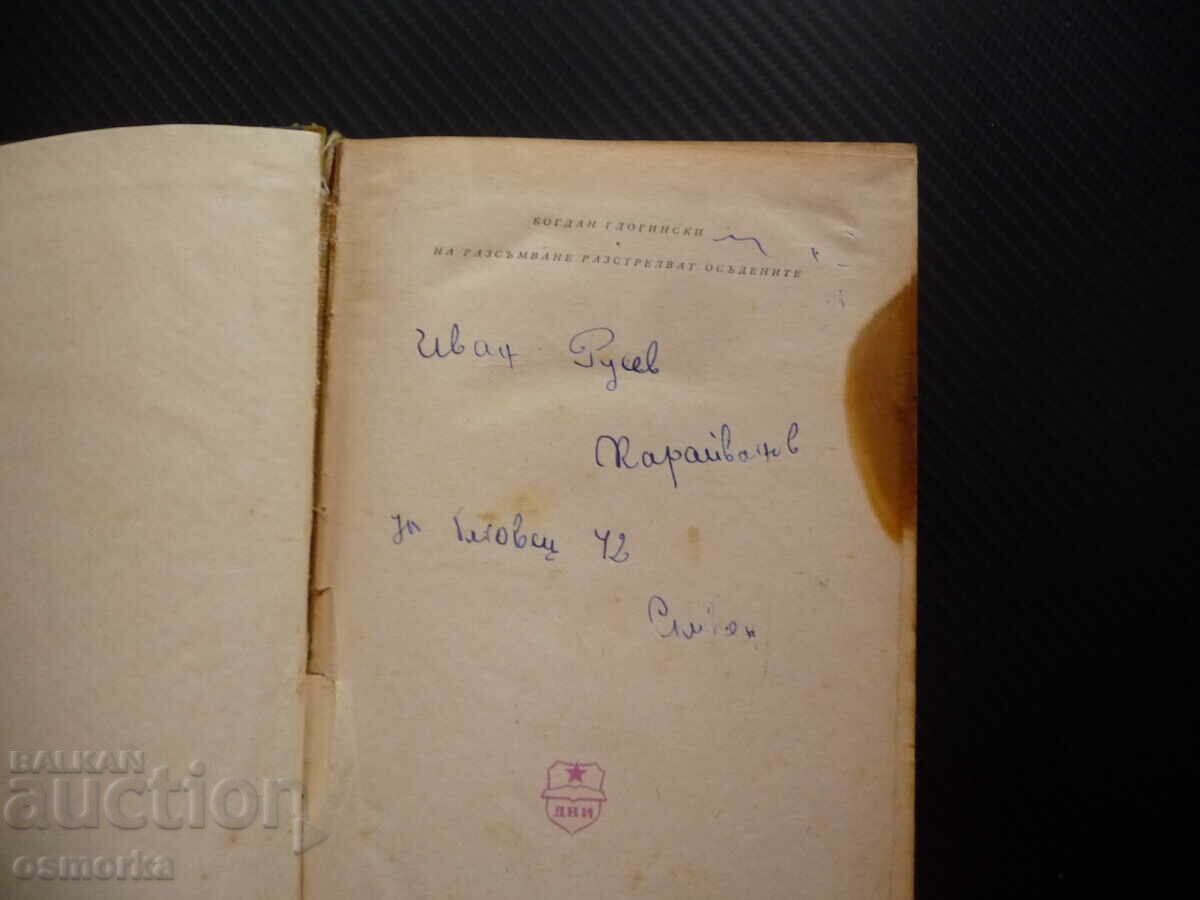 БОГДАН ГЛОГИНСКИ
НА РАЗСЪМВАНЕ РАЗСТРЕЛВАТ ОСЪДЕНИТЕ
Иван Русев
Карайванов
42
ДНИ
BALKAN
auction
osmorka